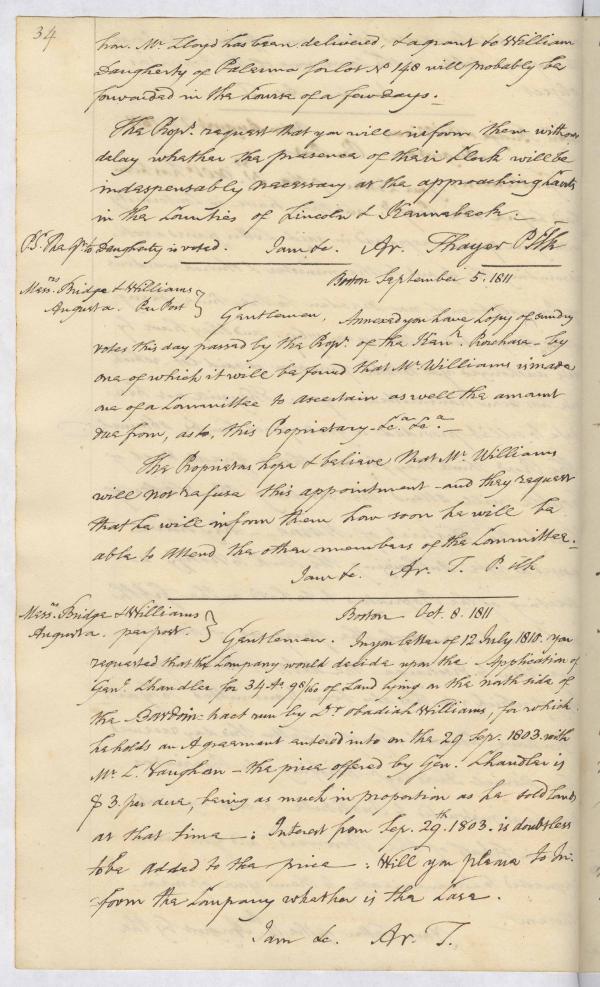 34
hon. Mr. Lloyd has been delivered, & a grant to William
Daugherty of Palermo for lot No 148 will probably be
forwarded in the Course of a few days. -
The Propr. request that you will inform them without
delay whether the presence of their Clerk will be
indespensably necessary at the approaching Courts
in the Counties of Lincoln & Kennebeck. -
P.S. The to Daugherty is voted. I am &c. Ar. Thayer P. Clk
Boston September 5. 1811
Messrs. Bridge & Williams
Augusta. Per Post
Gentlemen, Annexed you have Copy of sundry
votes this day passed by the Propr. of the Kenr. Purchase - by
one of which it will be found that Mr. Williams is made
one of a Committee to ascertain as well the amount
due from, as to, this Proprietary &c. &c. -
The Proprietors hope & believe that Mr. Williams
will not refuse this appointment - and they request
that he will inform them how soon he will be
able to attend the other members of the Committee. -
I am &c. Ar. T. P. Clk
Messrs. Bridge & Williams Boston Oct. 8. 1811
Augusta. per post.
Gentlemen. In your letter of 12 July 1810. you
requested that the Company would decide upon the Application of
Genl. Chandler for 34 As. 98/160 of Land lying on the north side of
the Bowdoin tract run by Dr. Obadiah Williams, for which
he holds an Agreement entered into on the 29 Sep. 1803. with
Mr. C. Vaughan - the price offered by Gen. Chandler is
$3. per acre, being as much in proportion as he sold lands
at that time : Interest from Sep. 29th. 1803. is doubtless
to be added to the price : Will you please to in-
form the Company whether is the Case.
I am &c. Ar. T.